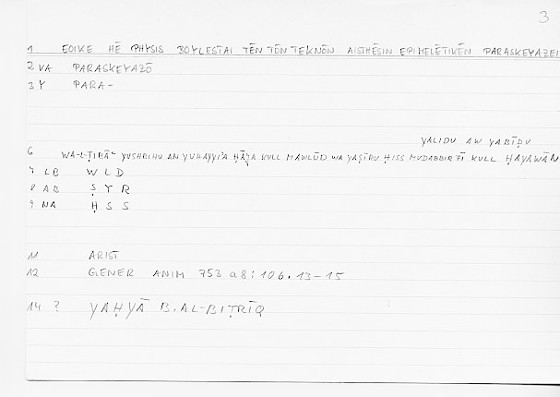 3
1 EOIKE HĒ PHYSIS BOYLESTAI TĒN TŌN TEKNŌN AISTHĒSIN EPIMELĒTIKĒN PARASKEYAZEI
2 VA PARASKEYAZŌ
3 Y PARA-
YALIDU AW YABĪḌU
6 WA-L-ṬIBĀ‘ YUSHBIHU AN YUHAYYI'A ḤĀYA KULL MAWLŪD WA YAṢĪRU ḤISS MUDABBIR FĪ KULL ḤAYAWĀN
7 LB WLD
8 AB ṢYR
9 NA ḤSS
11 ARIST
12 GENER ANIM 753 a8; 106.13-15
14 ? YAḤYĀ B. AL-BIṬRĪQ